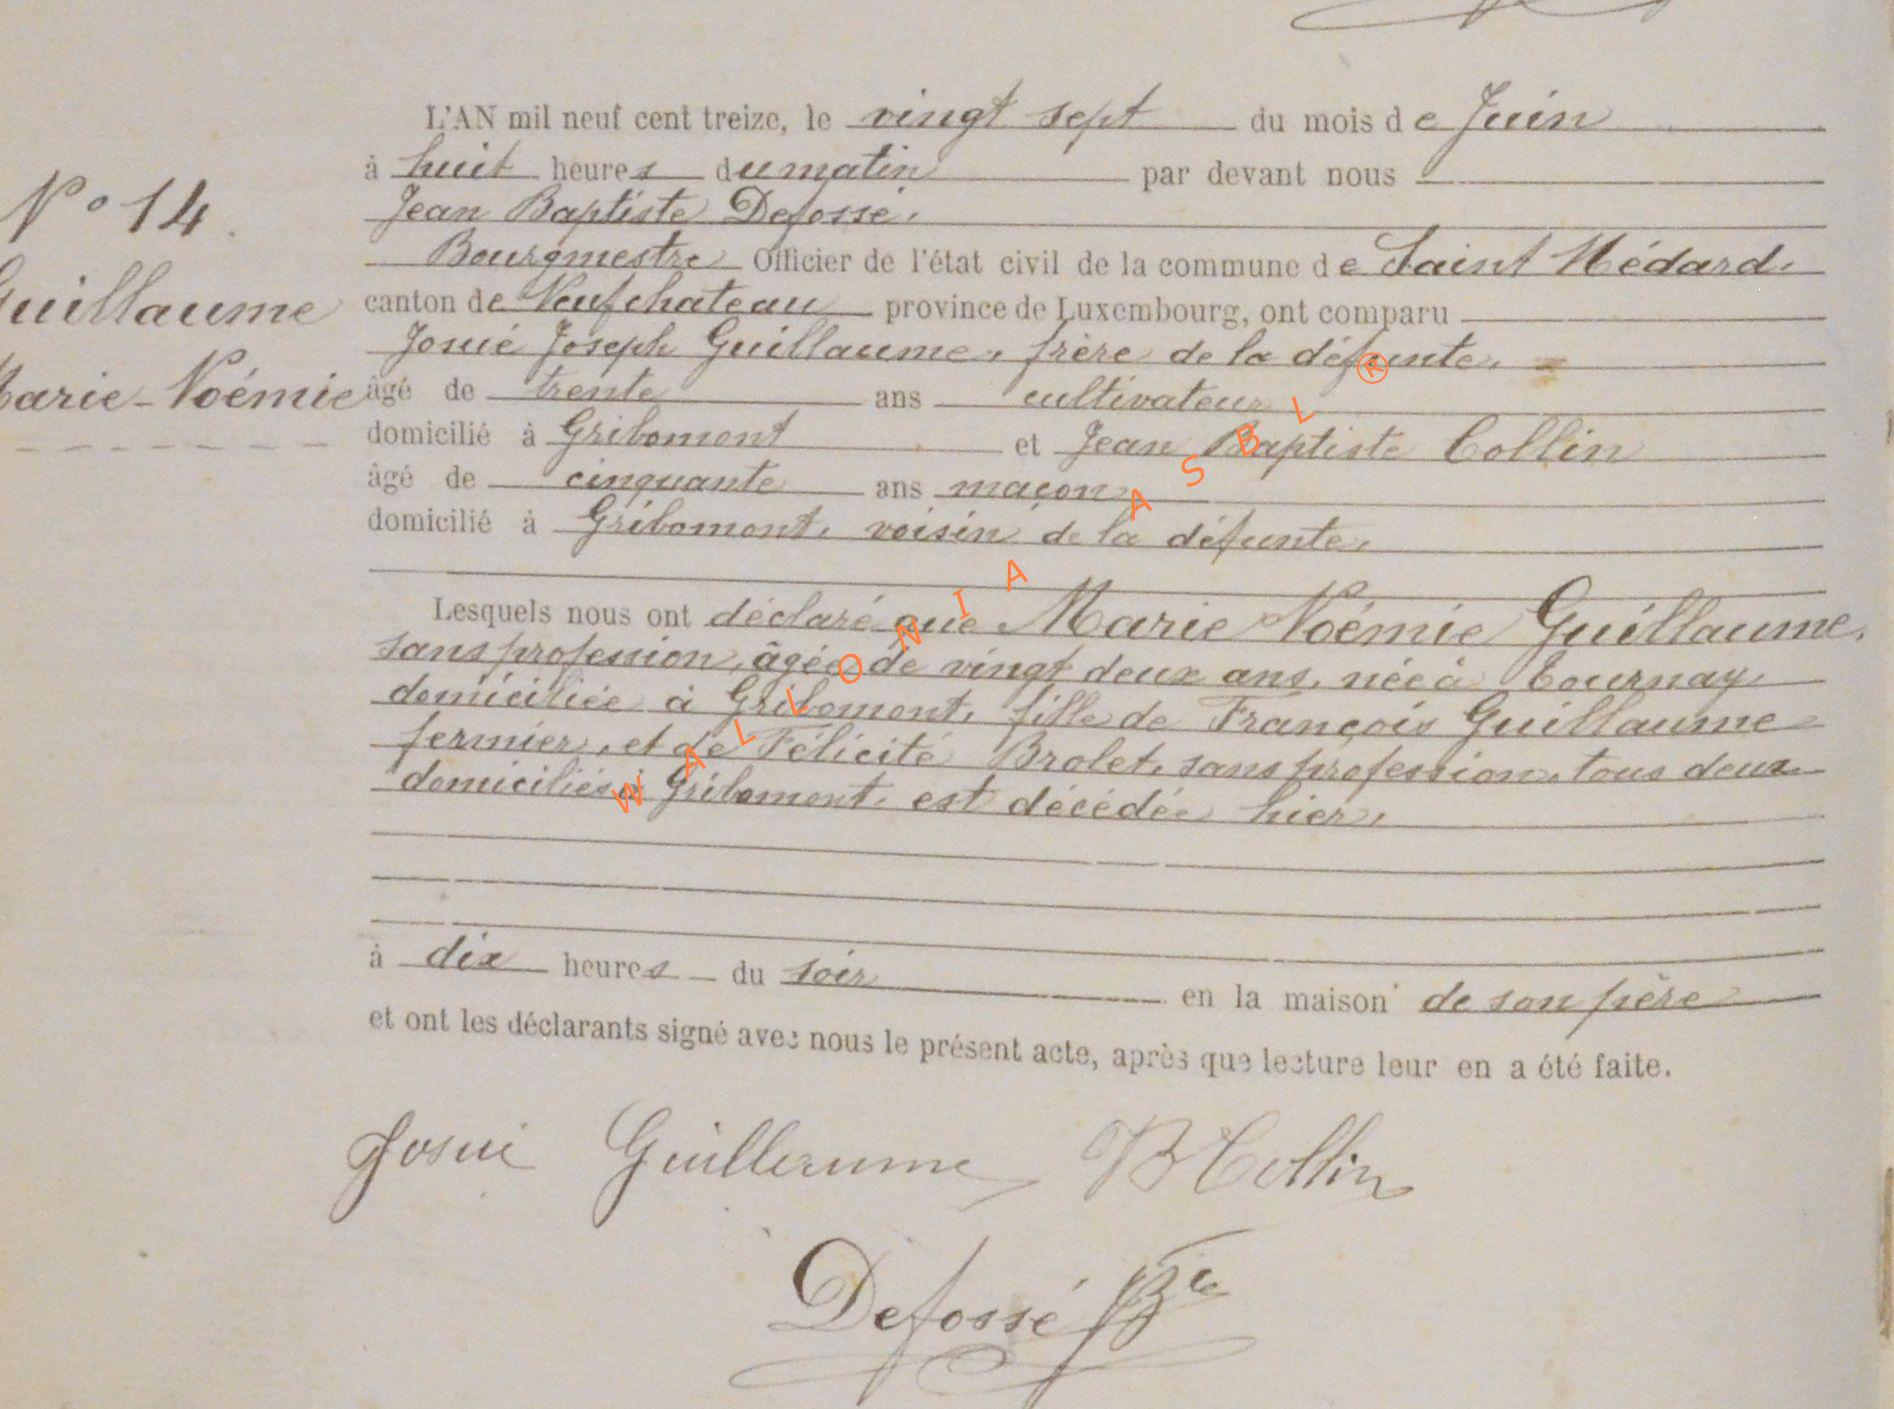 L'AN mil neuf cent treize, le vingt sept du mois de Juin
à huit heures du matin par devant nous
Jean Baptiste Defossé.
Bourgmestre Officier de l'état civil de la commune de Saint Médard.
canton de Neufchateau province de Luxembourg, ont comparu
Josué Joseph Guillaume, frère de la défunte,
âgé de trente ans cultivateur
domicilié à Gribomont et Jean Baptiste Collin
âgé de cinquante ans maçon
domicilié à Gribomont, voisin de la défunte,
Lesquels nous ont déclaré que Marie Noémie Guillaume,
sans profession, âgée de vingt deux ans, née à Tournay,
domiciliée à Gribomont, fille de François Guillaume
fermier, et de Félicité Brolet, sans profession, tous deux
domiciliés à Gribomont, est décédée hier,
à dix heures du soir en la maison de son père
et ont les déclarants signé avec nous le présent acte, après que lecture leur en a été faite.
N° 14.
Guillaume
Marie-Noémie
Josué Guillaume JB Collin
Defossé JBte
WALLONIA ASBL ®